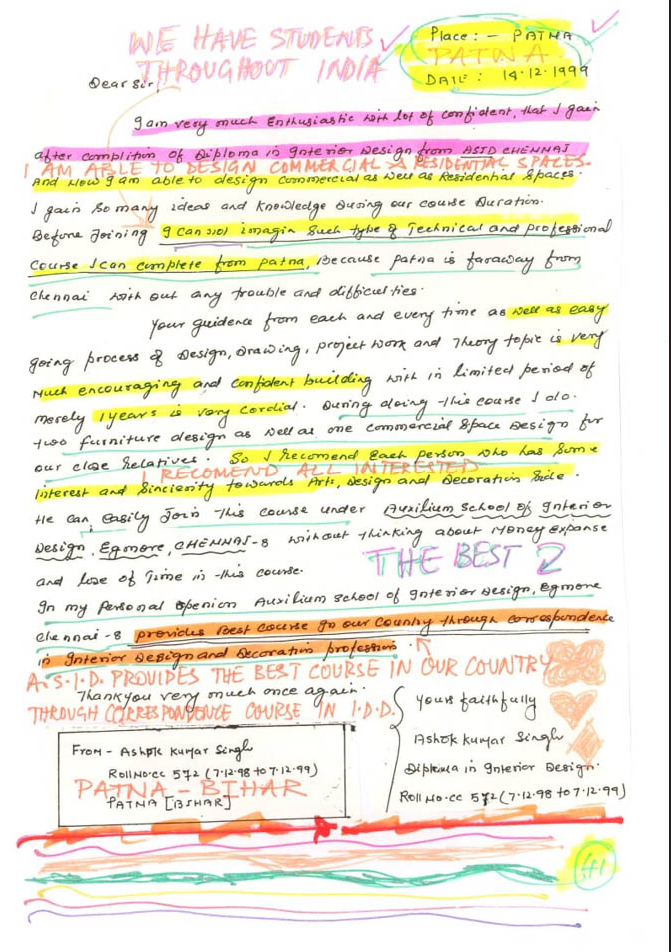 WE HAVE STUDENTS
THROUGHOUT INDIA
Place : - PATNA
PATNA
DATE : 14.12.1999
Dear Sir,
I am very much Enthusiastic with lot of confident, that I gain
after complition of Diploma in Interior Design from ASID CHENNAI
I AM ABLE TO DESIGN COMMERCIAL & RESIDENTIAL SPACES.
And Now I am able to design Commercial as well as Residential Spaces.
I gain So many ideas and Knowledge During our course Duration.
Before Joining I can not imagin Such type of Technical and professional
Course I can complete from patna, Because patna is faraway from
Chennai with out any trouble and difficulties.
Your guidence from each and every time as well as easy
going process of Design, Drawing, project work and Theory topic is very
Much encouraging and confident building with in limited period of
merely 1 years is very Cordial. During doing this course I do
two furniture design as well as one commercial Space Design for
our close Relatives. So I Recomend Each person who has Some
RECOMEND ALL INTERESTED
Interest and Sincierity towards Arts, Design and Decoration Side.
He can, easily Join this course under Auxilium School of Interior
Design, Egmore, CHENNAI-8 without thinking about Money Expanse
THE BEST 2
and lose of Time in this course.
In my Personal openion Auxilium School of Interior Design, Egmore
Chennai-8 provides Best Course In our Country through correspondence
in Interior Design and Decoration profession.
A.S.I.D. PROVIDES THE BEST COURSE IN OUR COUNTRY
Thankyou very much once again.
THROUGH CORRESPONDENCE COURSE IN I.D.D.
Yours faithfully
Ashok Kumar Singh
Diploma in Interior Design.
Roll No. cc 572 (7.12.98 to 7.12.99)
From - Ashok Kumar Singh
Roll No. cc 572 (7.12.98 to 7.12.99)
PATNA - BIHAR
PATNA [BIHAR]